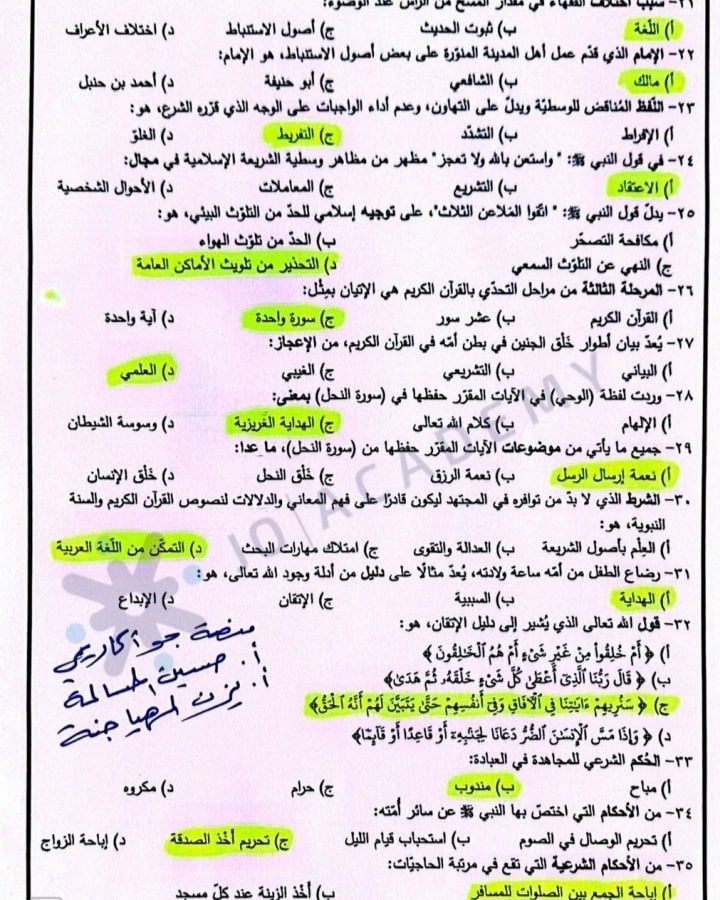 ٢١- سبب اختلاف الفقهاء في مقدار المسح من الرأس عند الوضوء:
أ) اللّغة ب) ثبوت الحديث ج) أصول الاستنباط د) اختلاف الأعراف
٢٢- الإمام الذي قدّم عمل أهل المدينة المنوّرة على بعض أصول الاستنباط، هو الإمام:
أ) مالك ب) الشافعي ج) أبو حنيفة د) أحمد بن حنبل
٢٣- اللّفظ المُناقض للوسطيّة ويدلّ على التهاون، وعدم أداء الواجبات على الوجه الذي قرّره الشرع، هو:
أ) الإفراط ب) التشدّد ج) التفريط د) الغلوّ
٢٤- في قول النبي ﷺ: " واستعن بالله ولا تعجز" مظهر من مظاهر وسطية الشريعة الإسلامية في مجال:
أ) الاعتقاد ب) التشريع ج) المعاملات د) الأحوال الشخصية
٢٥- يدلّ قول النبي ﷺ: " اتّقوا المَلاعن الثلاث"، على توجيه إسلامي للحدّ من التلوّث البيئي، هو:
أ) مكافحة التصحّر ب) الحدّ من تلوّث الهواء
ج) النهي عن التلوّث السمعي د) التحذير من تلويث الأماكن العامة
٢٦- المرحلة الثالثة من مراحل التحدّي بالقرآن الكريم هي الإتيان بمِثْل:
أ) القرآن الكريم ب) عشر سور ج) سورة واحدة د) آية واحدة
٢٧- يُعدّ بيان أطوار خَلْق الجنين في بطن أمّه في القرآن الكريم، من الإعجاز:
أ) البياني ب) التشريعي ج) الغيبي د) العلمي
٢٨- وردت لفظة (الوحي) في الآيات المقرّر حفظها في (سورة النحل) بمعنى:
أ) الإلهام ب) كلام الله تعالى ج) الهداية الغريزية د) وسوسة الشيطان
٢٩- جميع ما يأتي من موضوعات الآيات المقرّر حفظها من (سورة النحل)، ما عدا:
أ) نعمة إرسال الرسل ب) نعمة الرزق ج) خَلْق النحل د) خَلْق الإنسان
٣٠- الشرط الذي لا بدّ من توافره في المجتهد ليكون قادرًا على فهم المعاني والدلالات لنصوص القرآن الكريم والسنة
النبوية، هو:
أ) العِلْم بأصول الشريعة ب) العدالة والتقوى ج) امتلاك مهارات البحث د) التمكّن من اللّغة العربية
٣١- رضاع الطفل من أمّه ساعة ولادته، يُعدّ مثالًا على دليل من أدلة وجود الله تعالى، هو:
أ) الهداية ب) السببية ج) الإتقان د) الإبداع
٣٢- قول الله تعالى الذي يُشير إلى دليل الإتقان، هو:
أ) ﴿ أَمْ خُلِقُواْ مِنْ غَيْرِ شَىْءٍ أَمْ هُمُ ٱلْخَٰلِقُونَ ﴾
ب) ﴿ قَالَ رَبُّنَا ٱلَّذِىٓ أَعْطَىٰ كُلَّ شَىْءٍ خَلْقَهُۥ ثُمَّ هَدَىٰ﴾
ج) ﴿ سَنُرِيهِمْ ءَايَٰتِنَا فِى ٱلْءَافَاقِ وَفِىٓ أَنفُسِهِمْ حَتَّىٰ يَتَبَيَّنَ لَهُمْ أَنَّهُ ٱلْحَقُّ﴾
د) ﴿ وَإِذَا مَسَّ ٱلْإِنسَٰنَ ٱلضُّرُّ دَعَانَا لِجَنۢبِهِۦٓ أَوْ قَاعِدًا أَوْ قَآئِمًا﴾
منصة جو أكاديمي
أ. حسين المسالمة
أ. يزن المهياجنة
٣٣- الحُكم الشرعي للمجاهدة في العبادة:
أ) مباح ب) مندوب ج) حرام د) مكروه
٣٤- من الأحكام التي اختصّ بها النبي ﷺ عن سائر أمّته:
أ) تحريم الوصال في الصوم ب) استحباب قيام الليل ج) تحريم أخْذ الصدقة د) إباحة الزواج
٣٥- من الأحكام الشرعية التي تقع في مرتبة الحاجيّات:
أ) إباحة الجمع بين الصلوات للمسافر ب) أخْذ الزينة عند كلّ مسجد
JO|ACADEMY